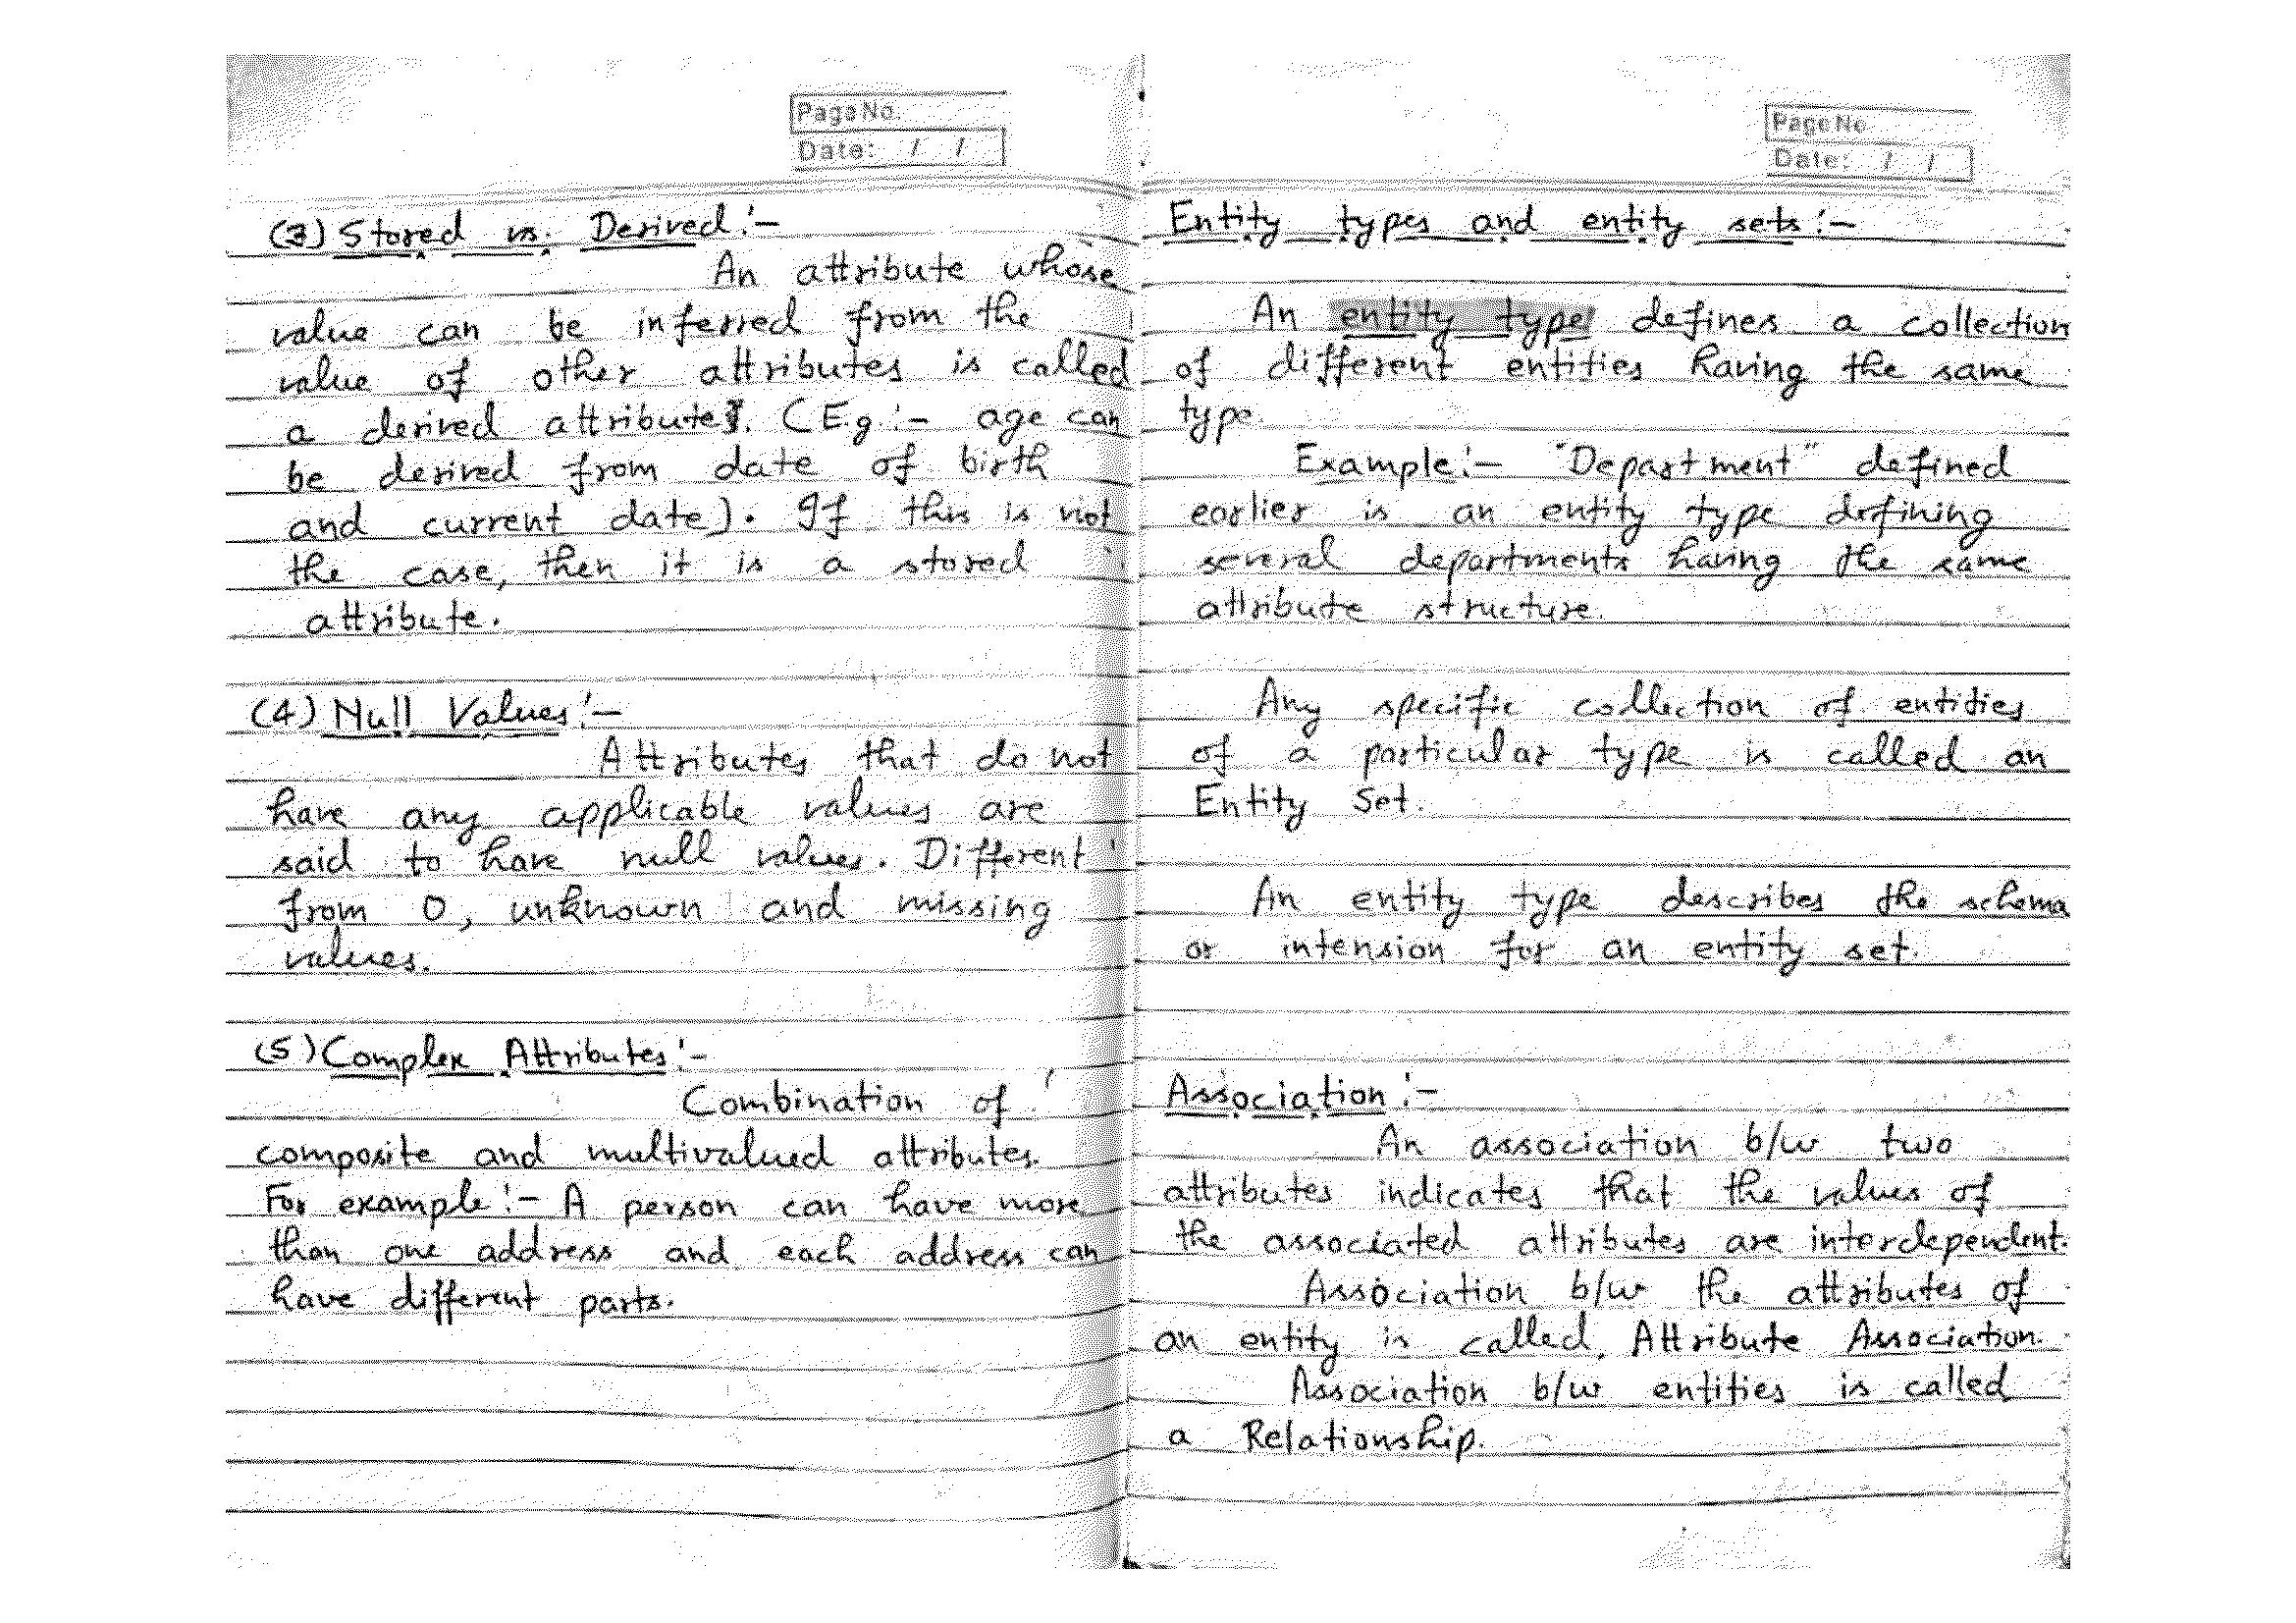 Page No.
Date: / /
(3) Stored vs. Derived:-
An attribute whose
value can be inferred from the
value of other attributes is called
a derived attribute. (E.g:- age can
be derived from date of birth
and current date). If this is not
the case, then it is a stored
attribute.
(4) Null Values:-
Attributes that do not
have any applicable values are
said to have null values. Different
from 0, unknown and missing
values.
(5) Complex Attributes:-
Combination of
composite and multivalued attributes.
For example:- A person can have more
than one address and each address can
have different parts.
Page No.
Date: / /
Entity types and entity sets:-
An entity type defines a collection
of different entities having the same
type.
Example:- "Department" defined
earlier is an entity type defining
several departments having the same
attribute structure.
Any specific collection of entities
of a particular type is called an
Entity Set.
An entity type describes the schema
or intension for an entity set.
Association:-
An association b/w two
attributes indicates that the values of
the associated attributes are interdependent.
Association b/w the attributes of
an entity is called Attribute Association.
Association b/w entities is called
a Relationship.